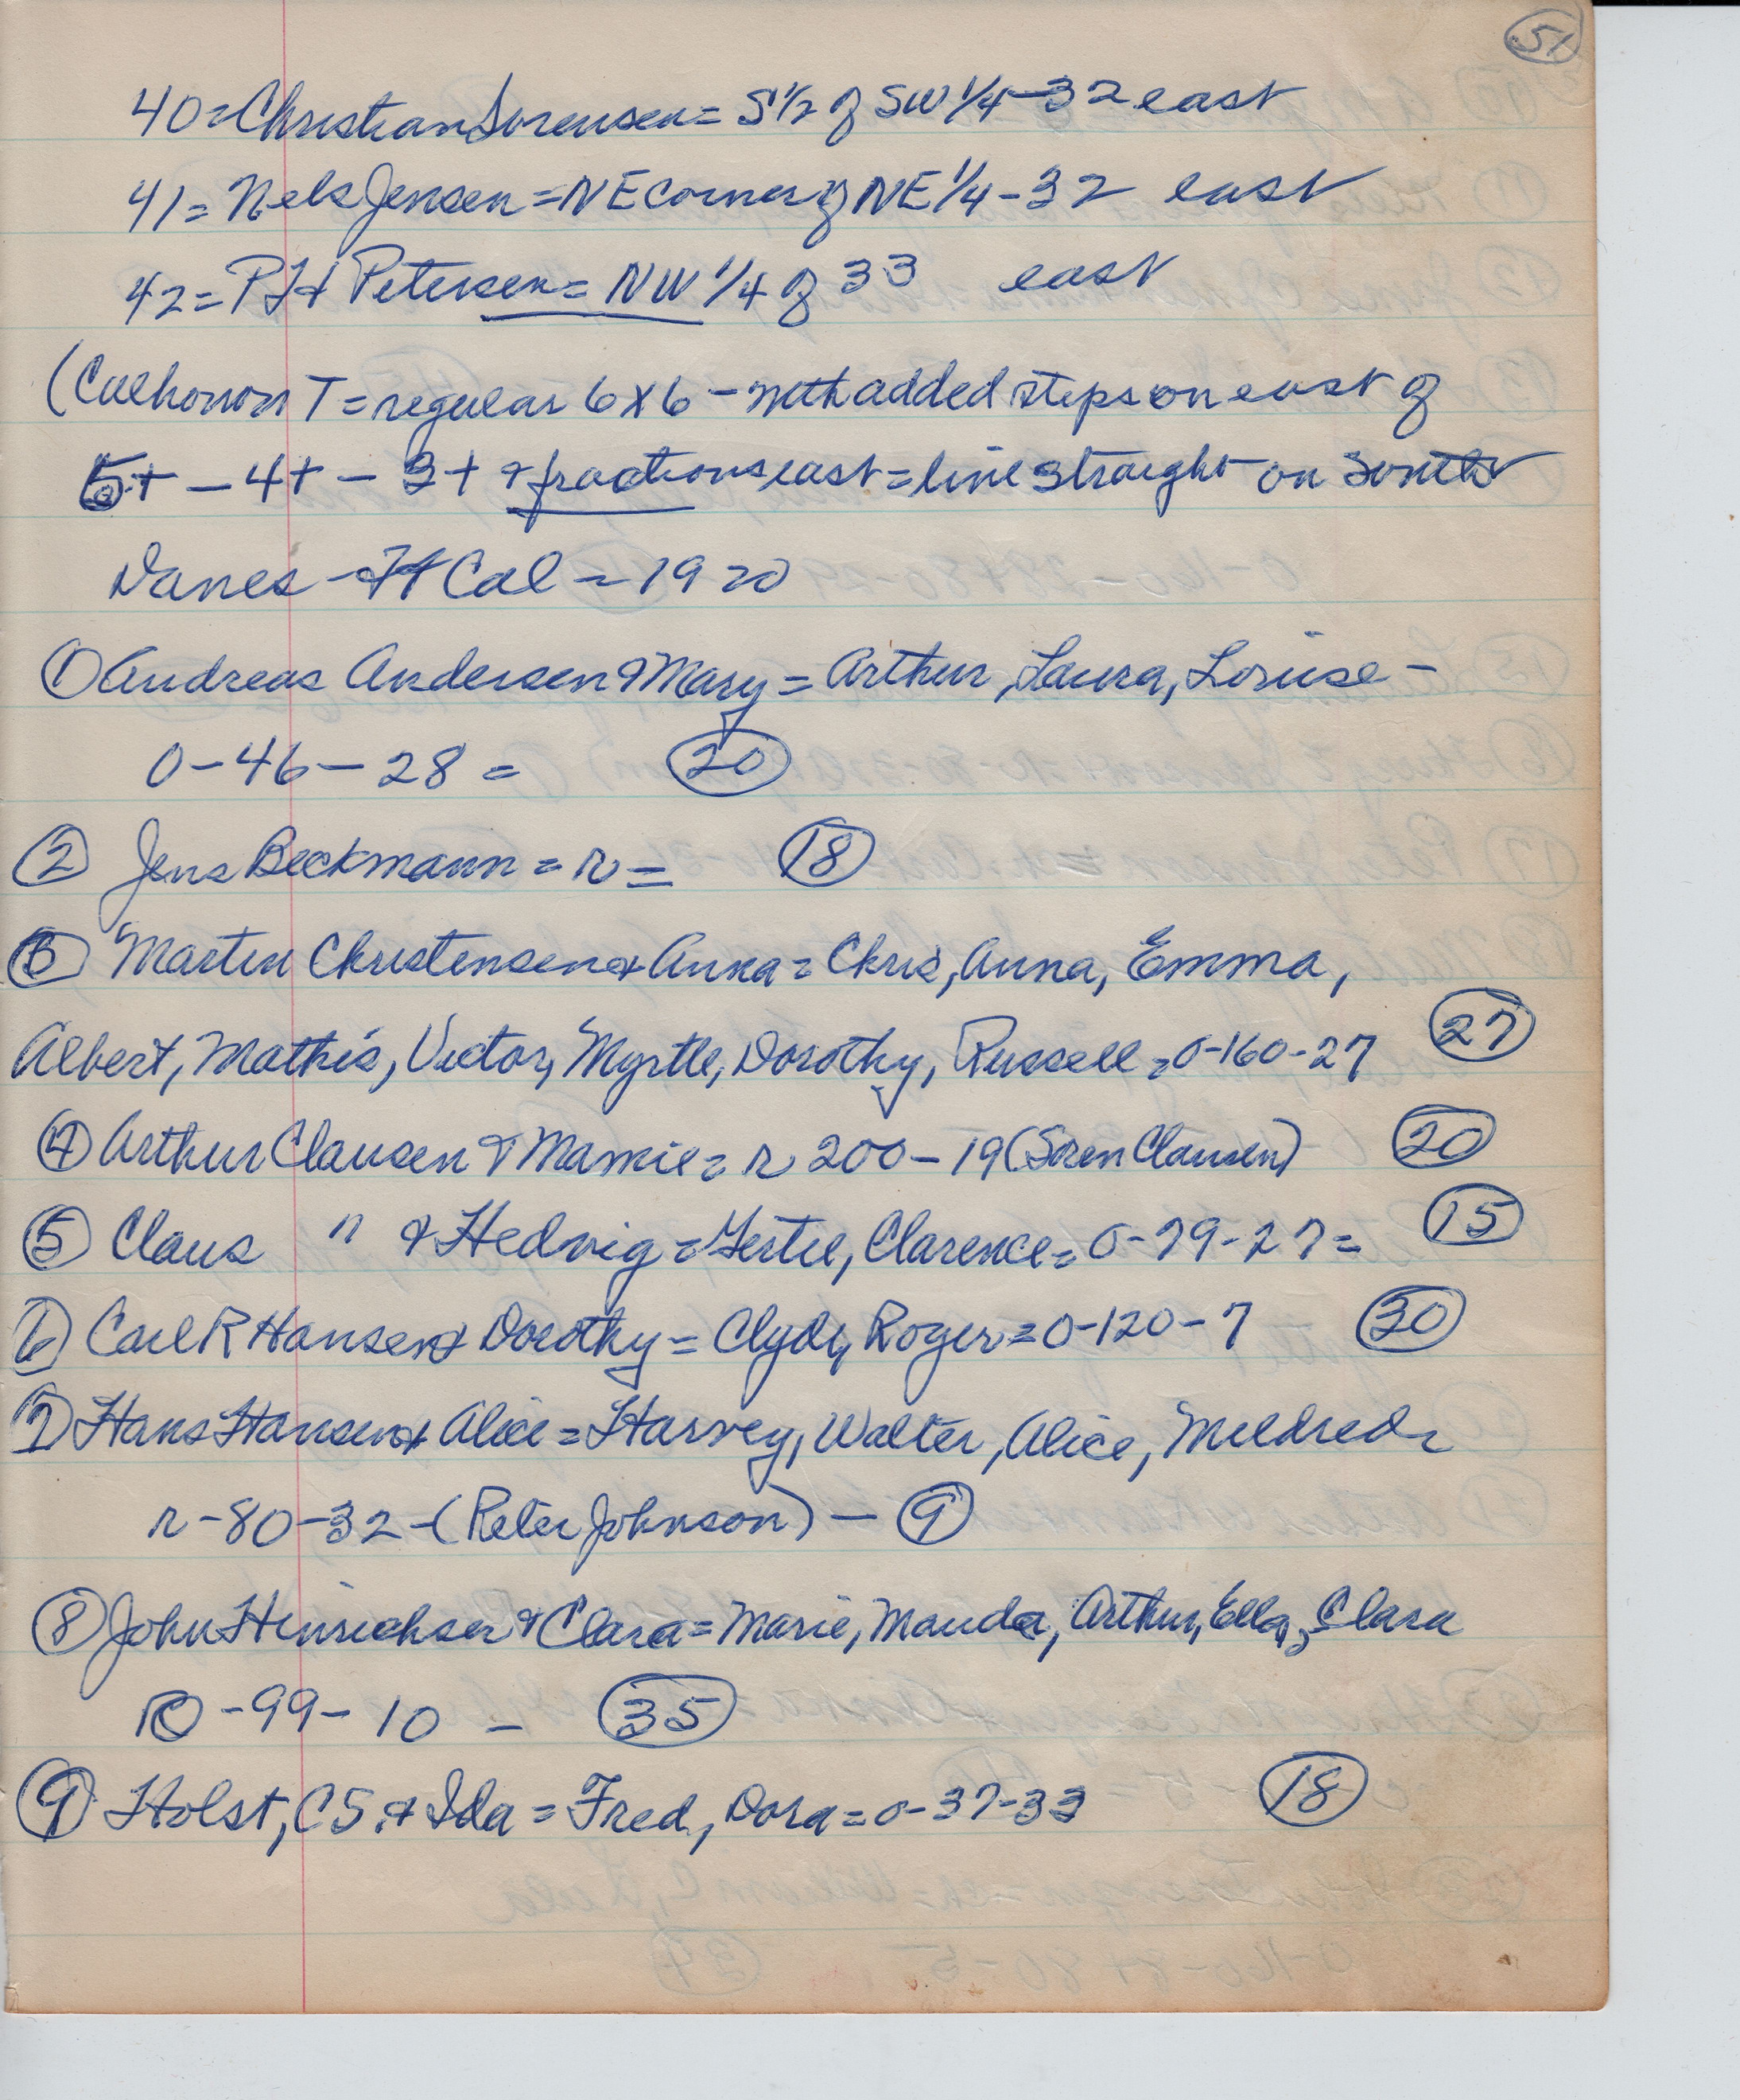 51
40=Christian Sorensen= S 1/2 of SW 1/4-32 east
41= Nels Jensen=NE corner of NE 1/4-32 east
42= P Petersen= NW 1/4 of 33 east
(Calhoun T= regular 6x6- with added steps on east of
5+ - 4+ - 3+ & fractions east=line straight on south
Danes - Ft Cal = 1920
① Andreas Andersen & Mary= Arthur, Laura, Louise-
0-46-28= ⑳
② Jens Beckmann= r= ⑱
③ Martin Christensen & Anna= Chris, Anna, Emma,
Albert, Mathis, Victor, Myrtle, Dorothy, Russell=0-160-27 ㉗
④ Arthur Clausen & Mamie= r 200-19 (Soren Clausen) ⑳
⑤ Claus " & Hedvig= Gertie, Clarence= 0-79-27= ⑮
⑥ Carl R Hansen & Dorothy= Clyde, Roger=0-120-7 ㉚
⑦ Hans Hansen & Alice= Harvey, Walter, Alice, Mildred=
r-80-32-(Peter Johnson)- ⑨
⑧ John Hinrichsen & Clara= Marie, Manda, Arthur, Ella, Clara
-99-10 - ㉟
⑨ Holst, CS. & Ida= Fred, Dora=0-37-33 ⑱